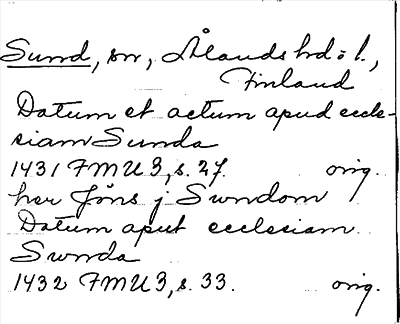 Sund, sn, Ålands hd o l.,
Finland
Datum et actum apud eccle-
siam Sunda
1431 FMU 3, s. 27. orig.
her Jöns j Swndom
Datum aput ecclesiam
Swnda
1432 FMU 3, s. 33. orig.